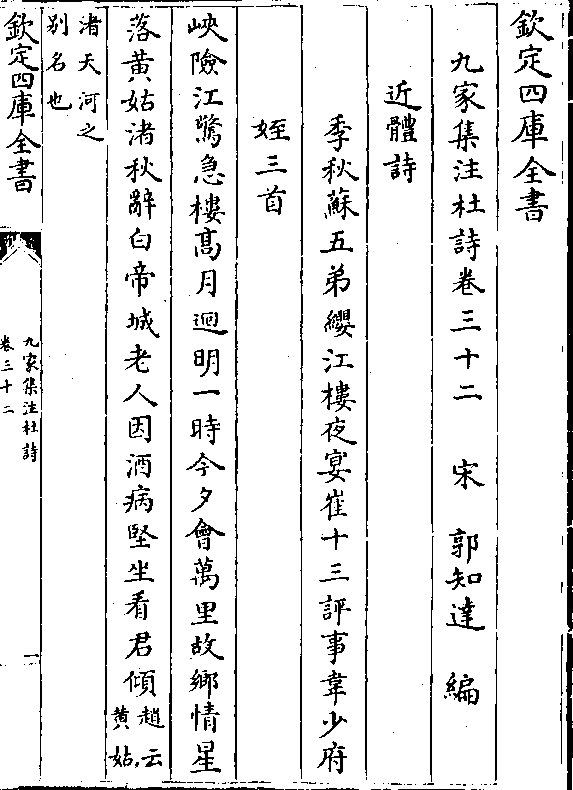 欽定四庫全書
九家集注杜詩卷三十二　宋　郭知達　編
近體詩
季秋蘇五弟纓江樓夜宴崔十三評事韋少府
姪三首
峽險江驚急樓髙月迥明一時今夕㑹萬里故鄉情星
落黄姑渚秋辭白帝城老人因酒病堅坐看君傾趙云
黄姑
渚天河之
别名也
欽定四庫全書
九家集注杜詩
卷三十二
一